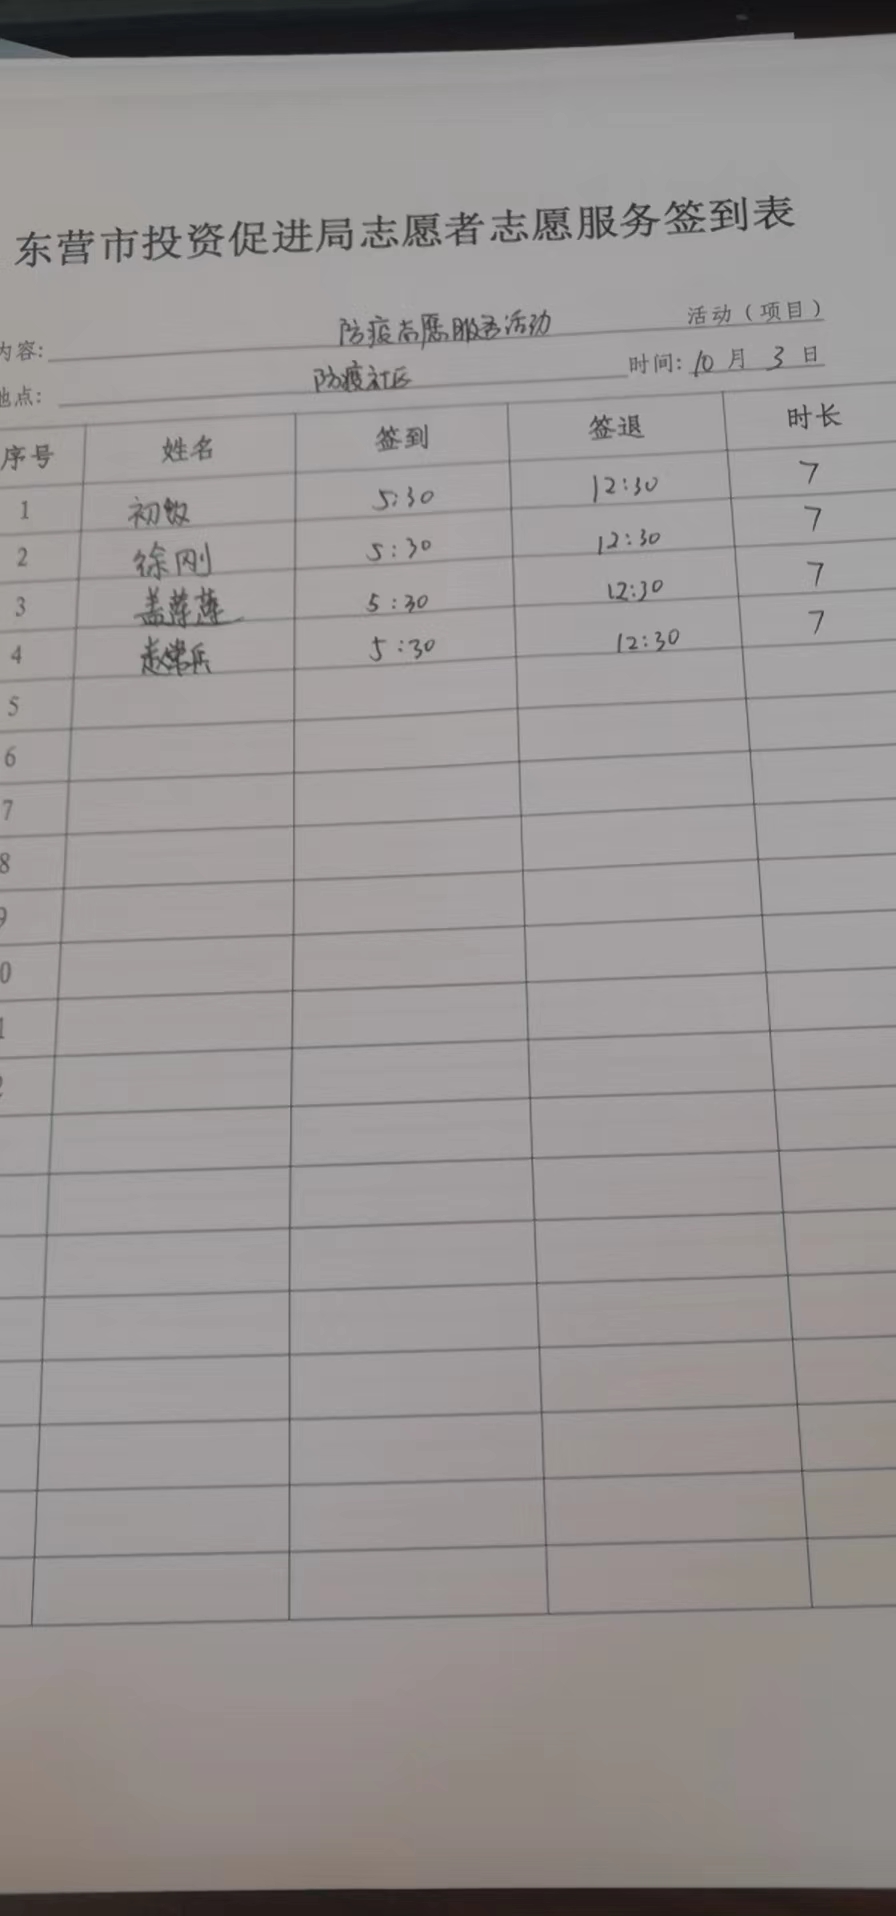 东营市投资促进局志愿者志愿服务签到表
内容: 防疫志愿服务活动 活动（项目）
地点: 防疫社区 时间: 10 月 3 日
序号 姓名 签到 签退 时长
1 初敏 5:30 12:30 7
2 徐刚 5:30 12:30 7
3 盖萍萍 5:30 12:30 7
4 5:30 12:30 7
5
6
7
8
9
0
1
2